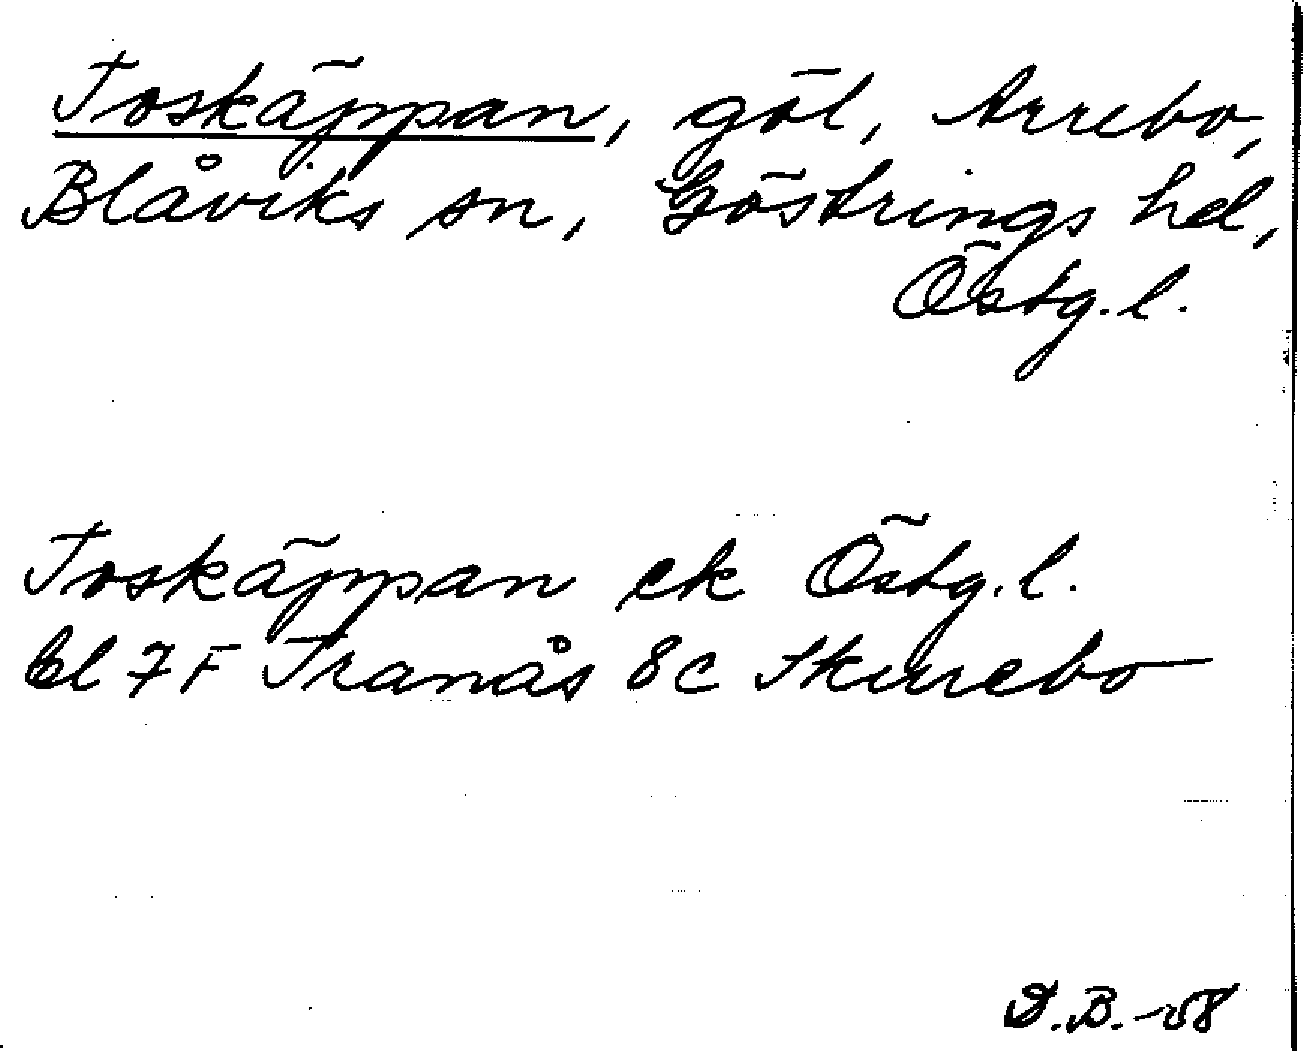 Toskäppan, göl, Arrebo,
Blåviks sn, Göstrings hd,
Östg.l.
Toskäppan ek Östg.l.
bl 7F Tranås 8c Skurebo
D.B.-58